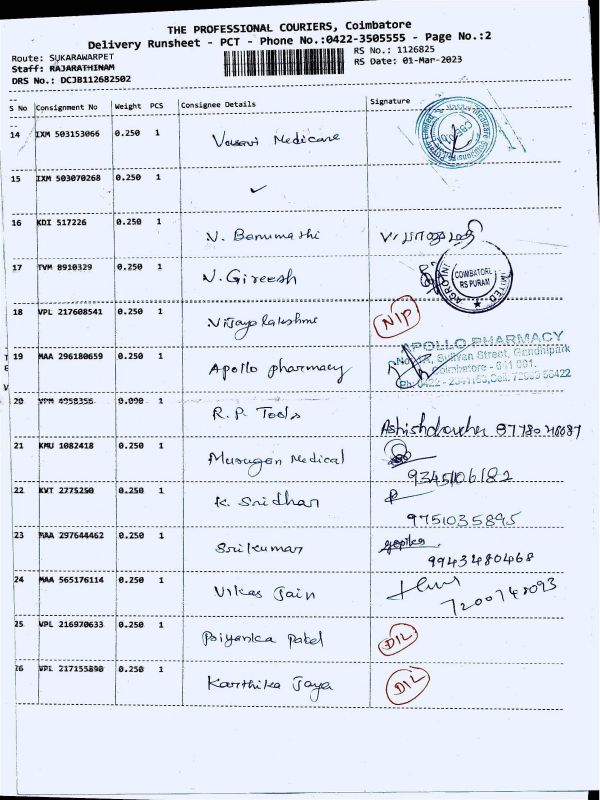 THE PROFESSIONAL COURIERS, Coimbatore
Delivery Runsheet - PCT - Phone No.:0422-3505555 - Page No.:2
Route: SUKARAWARPET
RS No.: 1126825
Staff: RAJARATHINAM
RS Date: 01-Mar-2023
DRS No.: DCJB112682502
S No Consignment No Weight PCS Consignee Details Signature
14 IXM 503153066 0.250 1 Vasavi Medicare
15 IXM 503070268 0.250 1 ✓
16 KDI 517226 0.250 1 N. Banumathi
17 TVM 8910329 0.250 1 N. Gireesh COIMBATORE RS PURAM
18 VPL 217608541 0.250 1 Vijayalakshmi N1P
19 MAA 296180659 0.250 1 Apollo pharmacy
APOLLO PHARMACY
Sullivan Street, Gandhipark
Coimbatore - 641 001.
20 VPM 4958356 0.090 1 R.P. Tools
21 KMU 1082418 0.250 1 Murugan Medical
9345106182
22 KVT 2775250 0.250 1 K. Sridhar
9751035895
23 MAA 297644462 0.250 1 Srikumar gopika
9943480468
24 MAA 565176114 0.250 1 Vikas Jain
7200748093
25 VPL 216970633 0.250 1 Priyanka Patel D1L
26 VPL 217155890 0.250 1 Karthika Jaya D1L